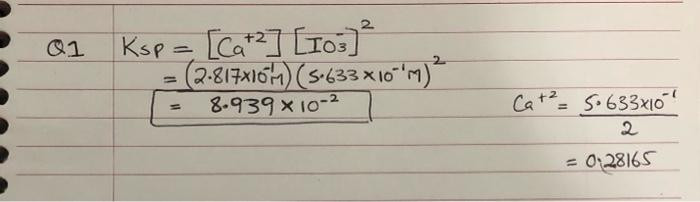 Q1 Ksp = [Ca⁺²] [IO₃⁻]²
= (2.817x10⁻¹M) (5.633x10⁻¹M)²
= 8.939x10⁻²
Ca⁺² = 5.633x10⁻¹
2
= 0.28165